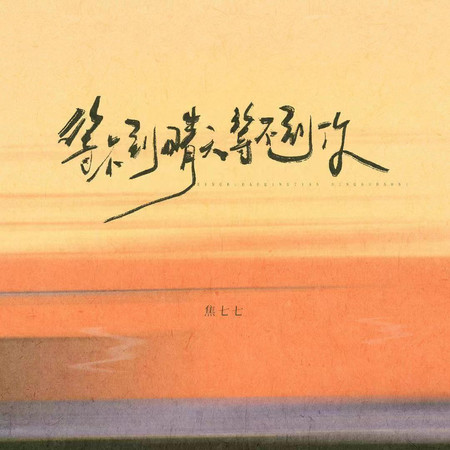 等不到晴天等不到你
焦七七